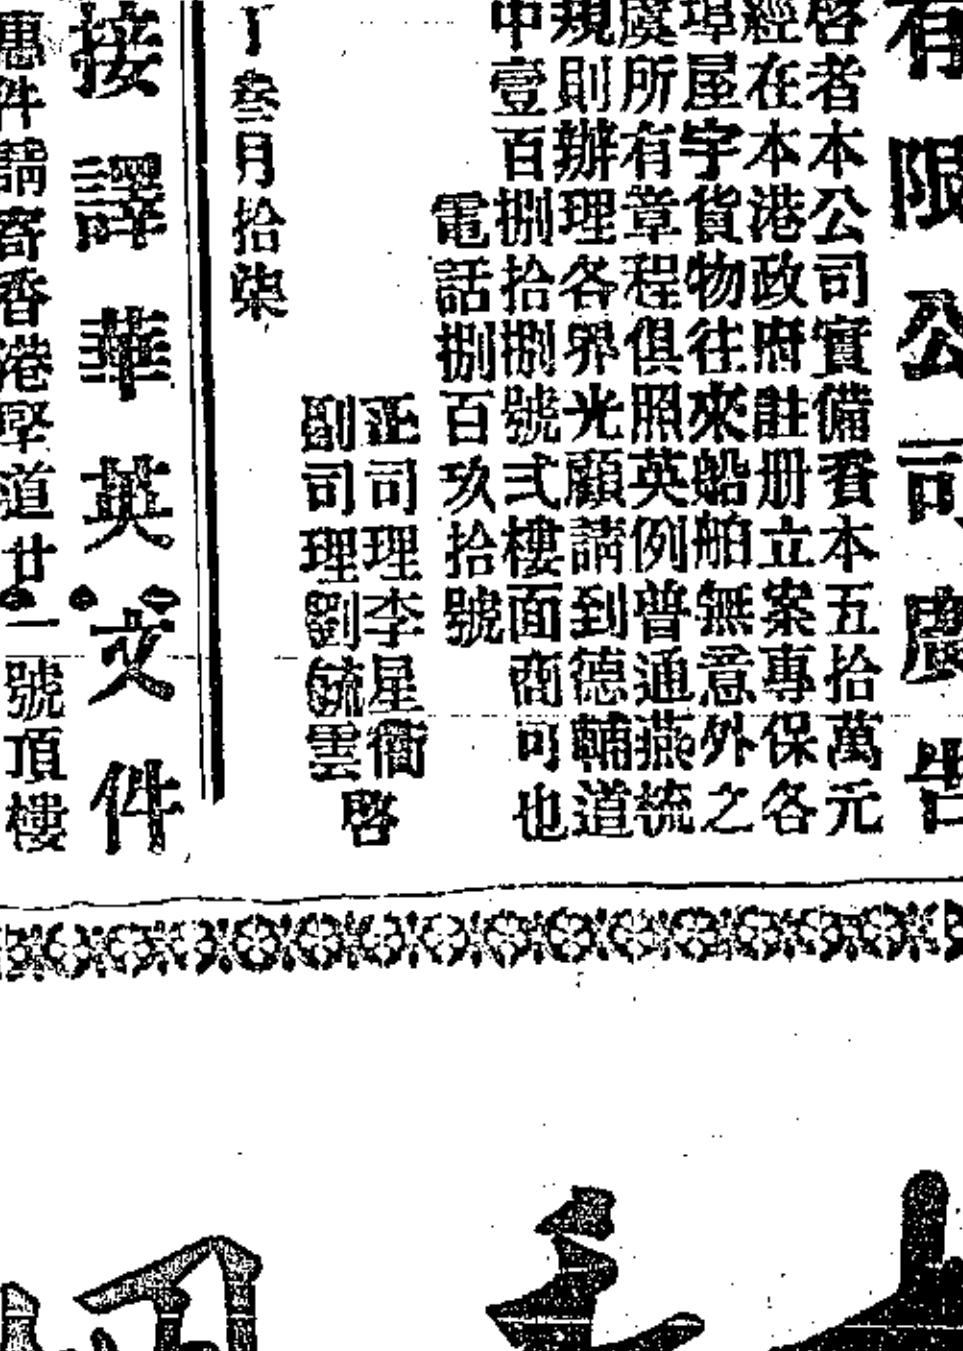 有限公司廣告
啓者本公司實備資本五拾萬元
經在本港政府註册立案專保各
埠屋宇貨物往來船舶無意外之
虞所有章程俱照英例普通燕梳
規則辦理各界光顧請到德輔道
中壹百捌拾捌號弍樓面商可也
電話捌百玖拾號
正司理李星衢
副司理劉毓雲
啓
丁叁月拾柒
接譯華英文件
惠件請寄香港堅道廿一號頂樓